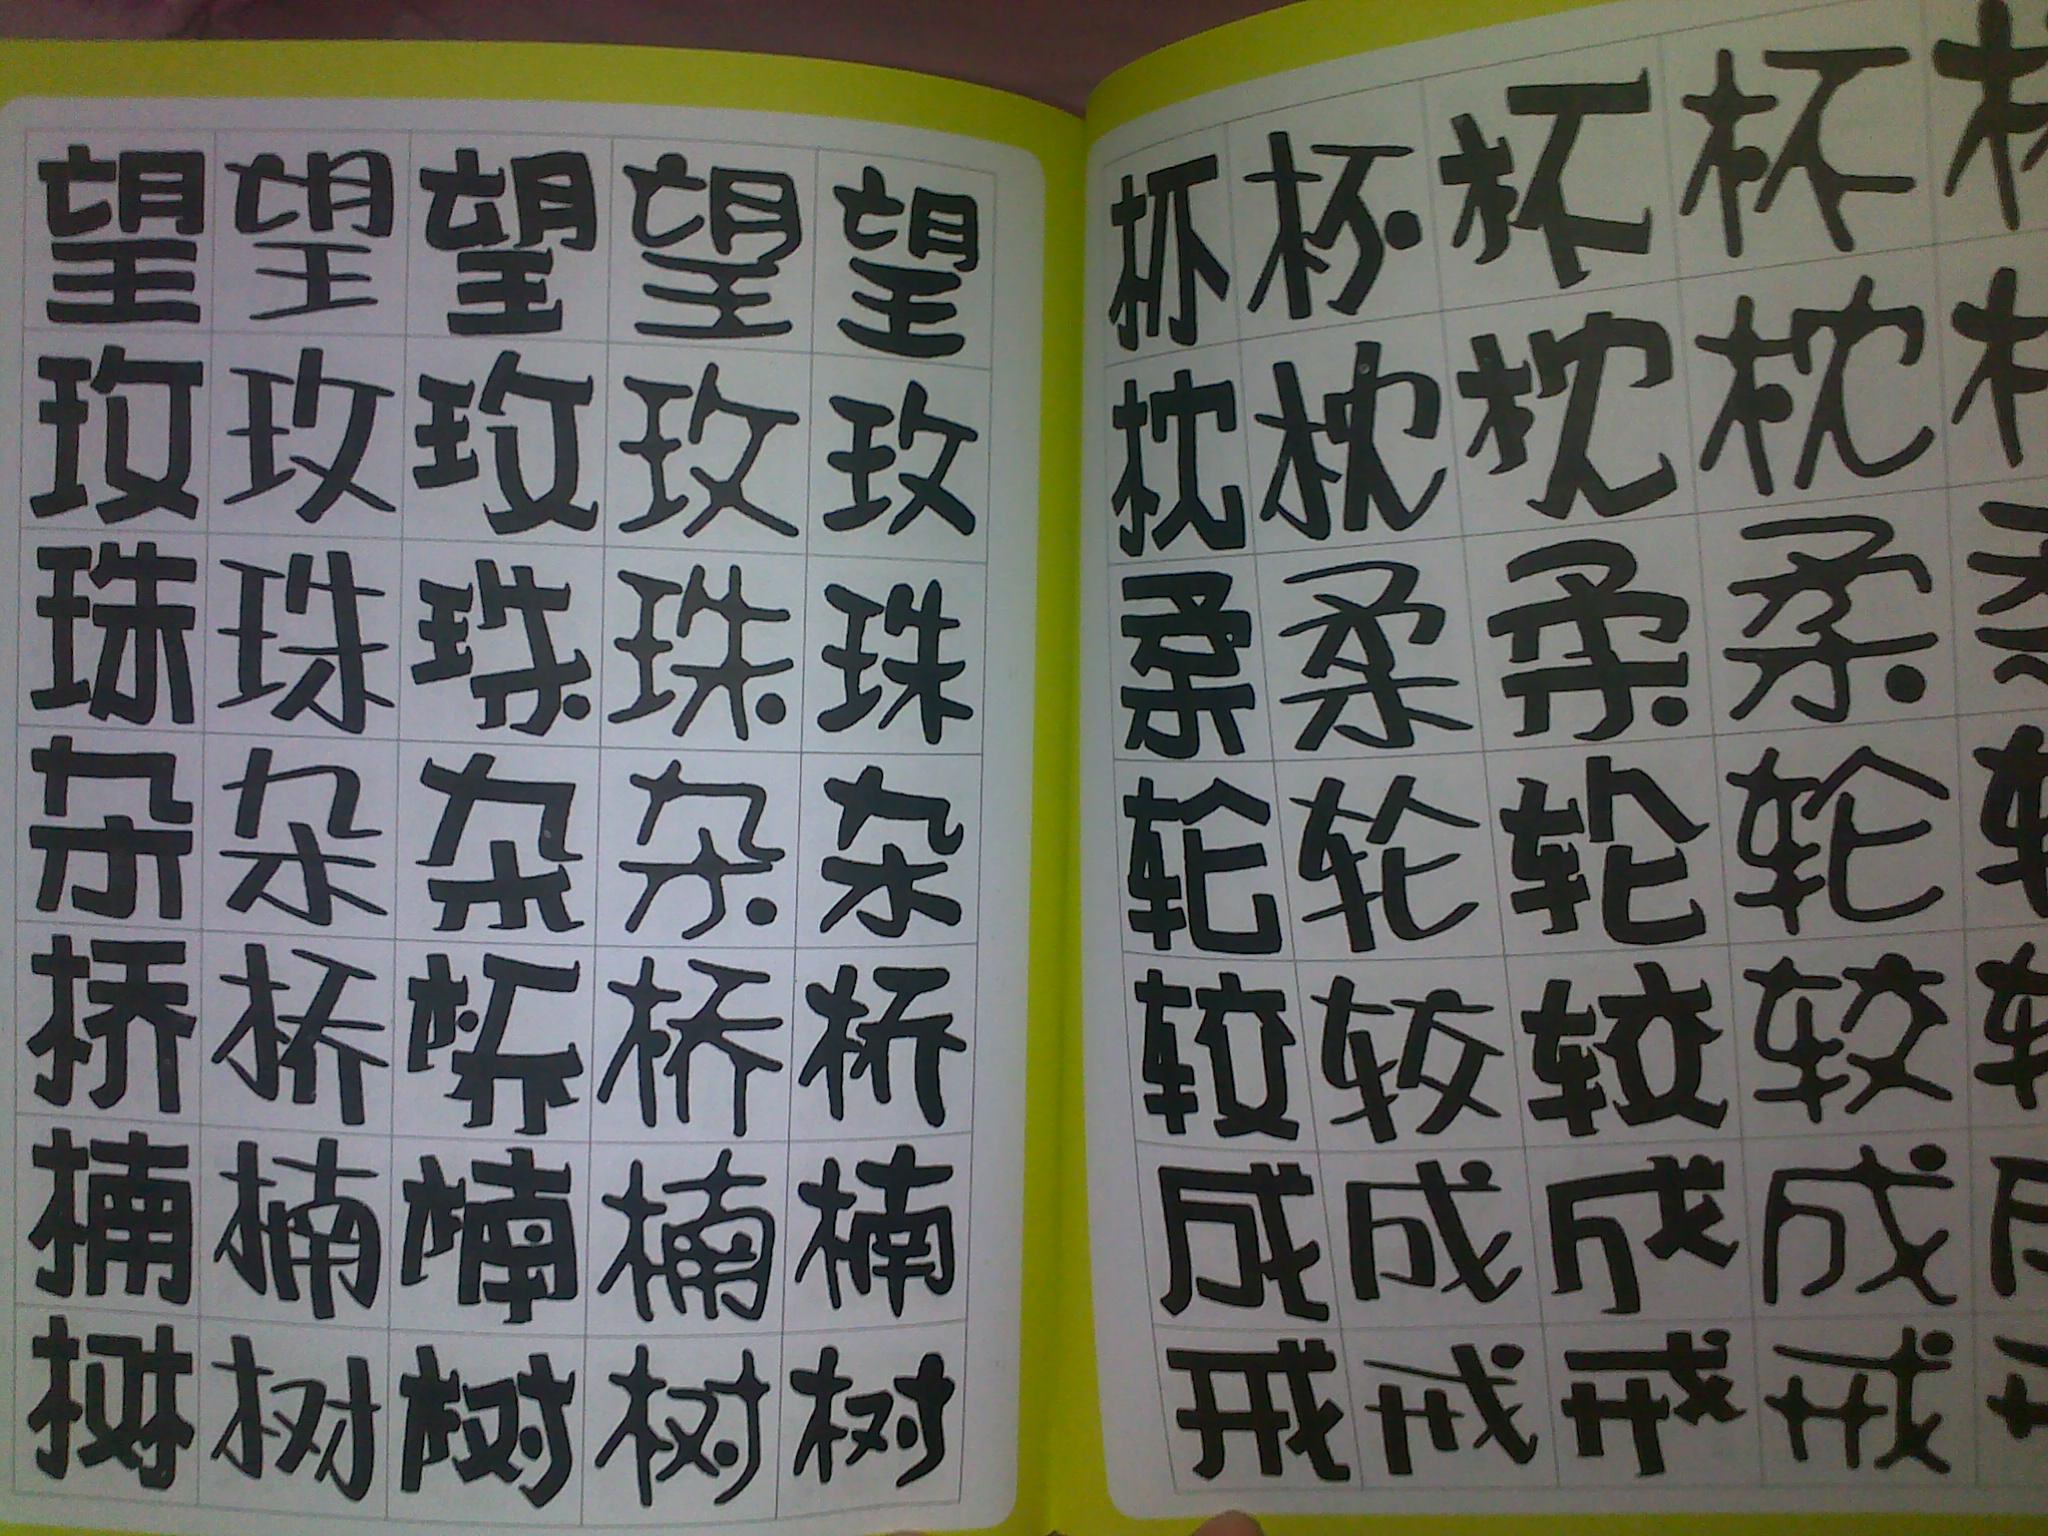 望 望 望 望 望
玫 玫 玫 玫 玫
珠 珠 珠 珠 珠
朵 朵 朵 朵 朵
桥 桥 桥 桥 桥
楠 楠 楠 楠 楠
树 树 树 树 树
杯 杯 杯 杯
枕 枕 枕 枕
柔 柔 柔 柔
轮 轮 轮 轮
较 较 较 较
成 成 成 成
戒 戒 戒 戒